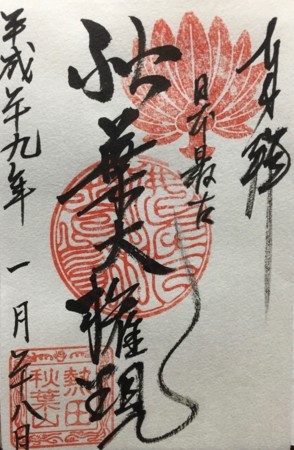 奉拝
日本最古
秋葉大權現
平成廿九年 一月廿八日
熱田
秋葉山